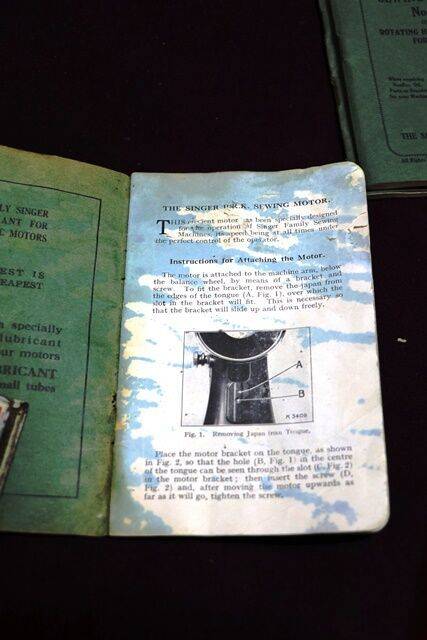 LY SINGER
ANT FOR
MOTORS
EST IS
EAPEST
specially
lubricant
our motors
BRICANT
mall tubes
THE SINGER B.R.K. SEWING MOTOR.
THIS efficient motor has been specially designed
for the operation of Singer Family Sewing
Machines, its speed being at all times under
the perfect control of the operator.
Instructions for Attaching the Motor.
The motor is attached to the machine arm, below
the balance wheel, by means of a bracket and
screw. To fit the bracket, remove the japan from
the edges of the tongue (A, Fig. 1), over which the
slot in the bracket will fit. This is necessary so
that the bracket will slide up and down freely.
A
B
Fig. 1. Removing Japan from Tongue.
Place the motor bracket on the tongue, as shown
in Fig. 2, so that the hole (B, Fig. 1) in the centre
of the tongue can be seen through the slot (C, Fig. 2)
in the motor bracket; then insert the screw (D,
Fig. 2) and, after moving the motor upwards as
far as it will go, tighten the screw.
No
ROTATING
FO
When requiring
THE S
All Rights